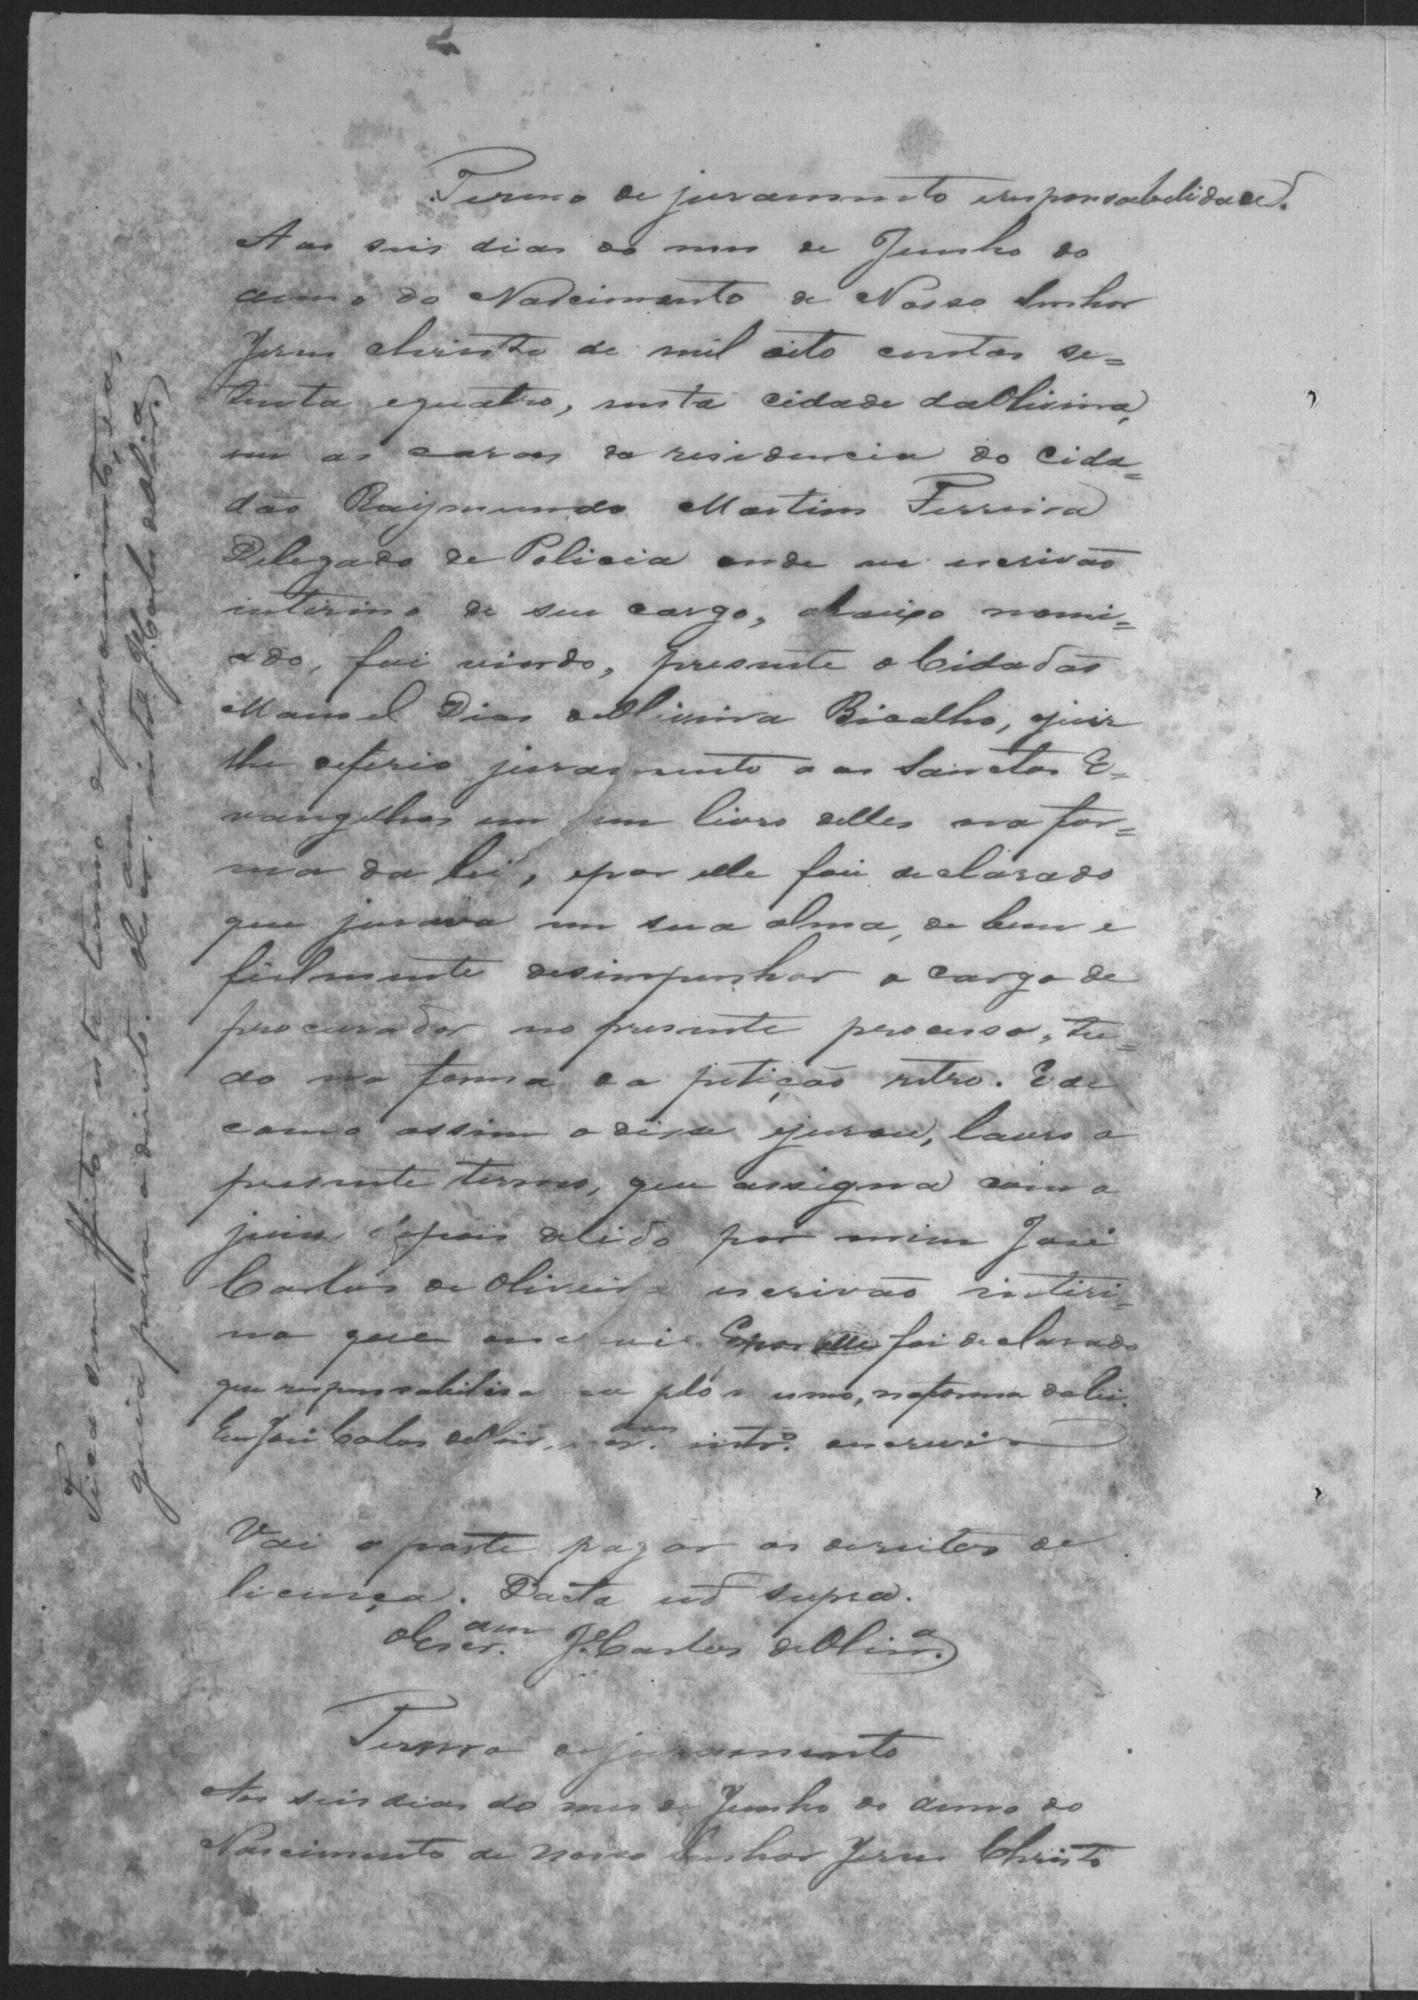 Termo de juramento eresponsabelidade.
Aos seis dias do mes de Junho do
anno do Nascimento de Nosso Senhor
Jesus Christo de mil oito centos se=
tenta equatro, nesta cidade
em as casas da residencia do Cida=
dão Raymundo Martins Ferreira
Delegado de Policia onde eu escrivão
interino de seu cargo, abaixo nomi=
ado, fui vindo, presente o Cidadão
Manoel Dias deOliveira Bicalho, ojuiz
lhe deferio juramento aos Sanctos E=
vangelhos em um livro delles na for=
ma da lei, epor elle foi declarado
que jurava em sua alma, de bem e
fielmente desimpenhar o cargo de
procurador no presente processo, tu=
do na forma da petição retro. E de
como assim o disse ejurou, lavro o
presente termo, que assigna com o
juiz depois delido por mim José
Carlos de Oliveira escrivão interi=
no que escrevi. Epor elle foi declarado
que responsabilisa se pelo mesmo, naforma dalei.
Eu José Carlos int.º escrevi
Vai a parte pagar os direitos de
licença. Dacta ud supra.
OEscr.am J.e Carlos deOliv.a
Termo dejuramento
Aos seis dias do mes de Junho do anno do
Nascimento de Nosso Senhor Jesus Christo
Fica sem effeito este termo de juramento,
J.e Carlos deOliv.a